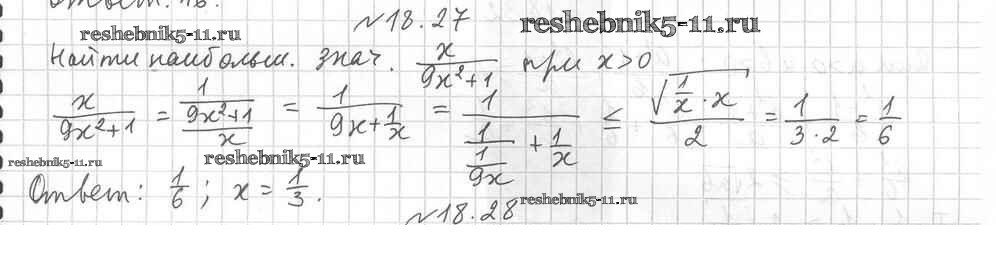 Ответ: 18.
№18.27 reshebnik5-11.ru
reshebnik5-11.ru
Найти наибольш. знач. x/(9x²+1) при x>0
x/(9x²+1) = 1/((9x²+1)/x) = 1/(9x+1/x) = 1/(1/(1/(9x))+1/x) ≤ √(1/x · x)/2 = 1/(3·2) = 1/6
reshebnik5-11.ru reshebnik5-11.ru
Ответ: 1/6; x = 1/3.
№18.28 reshebnik5-11.ru